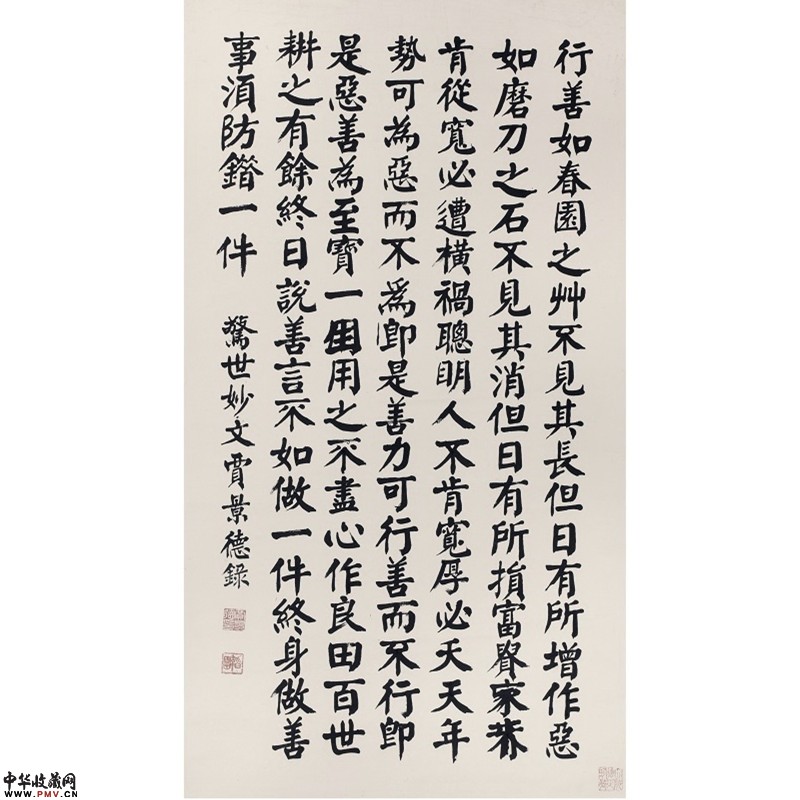 行善如春園之艸不見其長但日有所增作惡
如磨刀之石不見其消但日有所損富貴家
肯從寬必遭橫禍聰明人不肯寬厚必夭天年
勢可為惡而不為即是善力可行善而不行即
是惡善為至寶一用之不盡心作良田百世
耕之有餘終日說善言不如做一件終身做善
事須防錯一件
驚世妙文賈景德錄
中华收藏网
www.PMV.CN